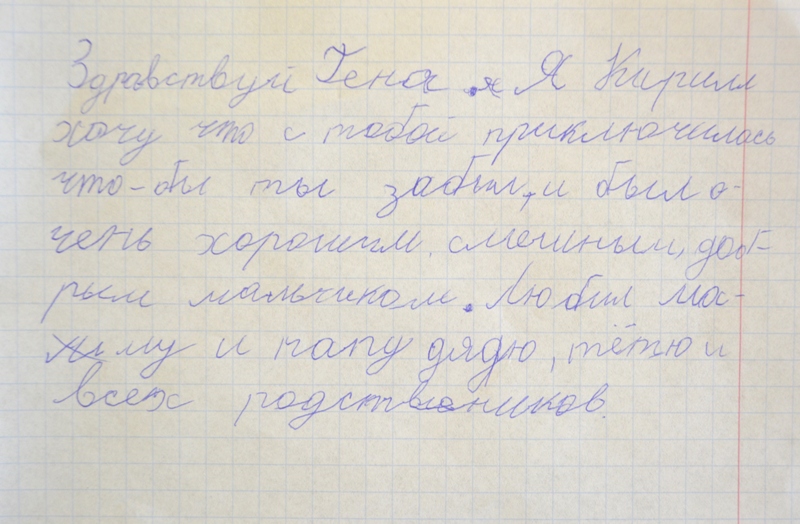 Здравствуй Гена. Я Кирилл
хочу что с тобой приключилась
что-бы ты забыл, и был о-
чень хорошим, смешным, доб-
рым мальчиком. Любил ма-
му и папу дядю, тётю и
всех родствеников.